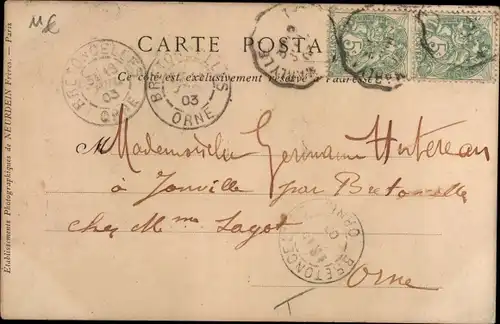 ME
CARTE POSTA
Ce côté est exclusivement réservé à l'adresse
BRETONCELLES
03
ORNE
BRETONCELLES
03
ORNE
5
5
Mademoiselle Germaine Hubereau
à Jonville par Bretoncelles
chez Mme Lagot
Orne
BRETONCELLES
T
Etablissements Photographiques de NEURDEIN Frères. — Paris